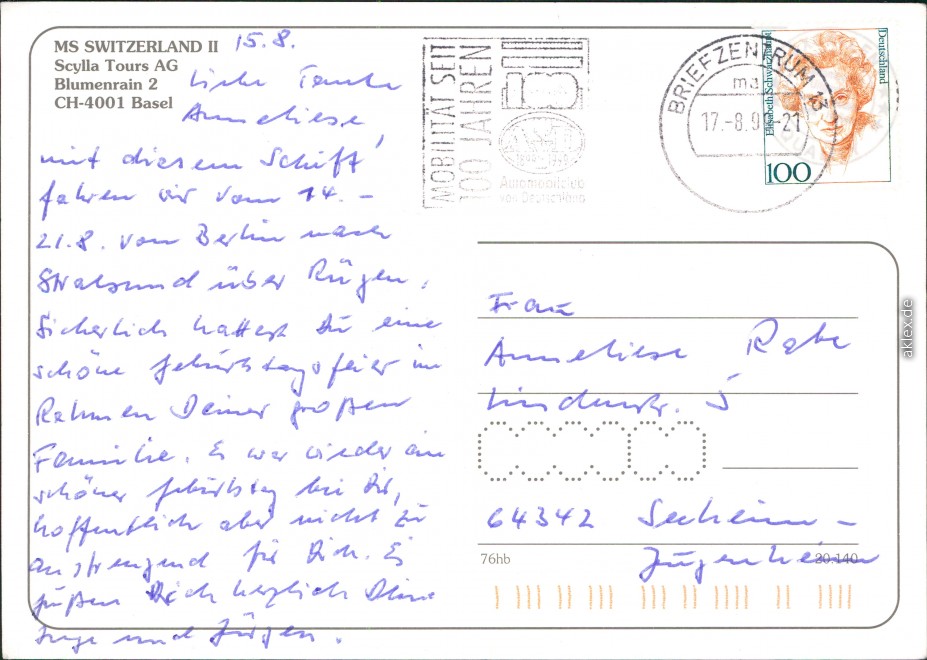 MS SWITZERLAND II
Scylla Tours AG
Blumenrain 2
CH-4001 Basel
15.8.
Liebe Tante
Anneliese,
mit diesem Schiff
fahren wir vom 14. -
21.8. von Berlin nach
Stralsund über Rügen.
Sicherlich hattest Du eine
schöne Geburtstagsfeier im
Rahmen Deiner großen
Familie. Es war wieder ein
schöner Geburtstag bei Dir,
hoffentlich aber nicht zu
anstrengend für Dich. Es
grüßen Dich herzlich Deine
Inge und Jürgen.
MOBILITÄT SEIT
100 JAHREN
1899-1999
Automobilclub
von Deutschland
BRIEFZENTRUM 13
17.-8.9 -21
Elisabeth Schwarzhaupt
Deutschland
100
Frau
Anneliese Rabe
Lindenstr. 5
64342 Seeheim-
Jugenheim
76hb
30.140
aklex.de